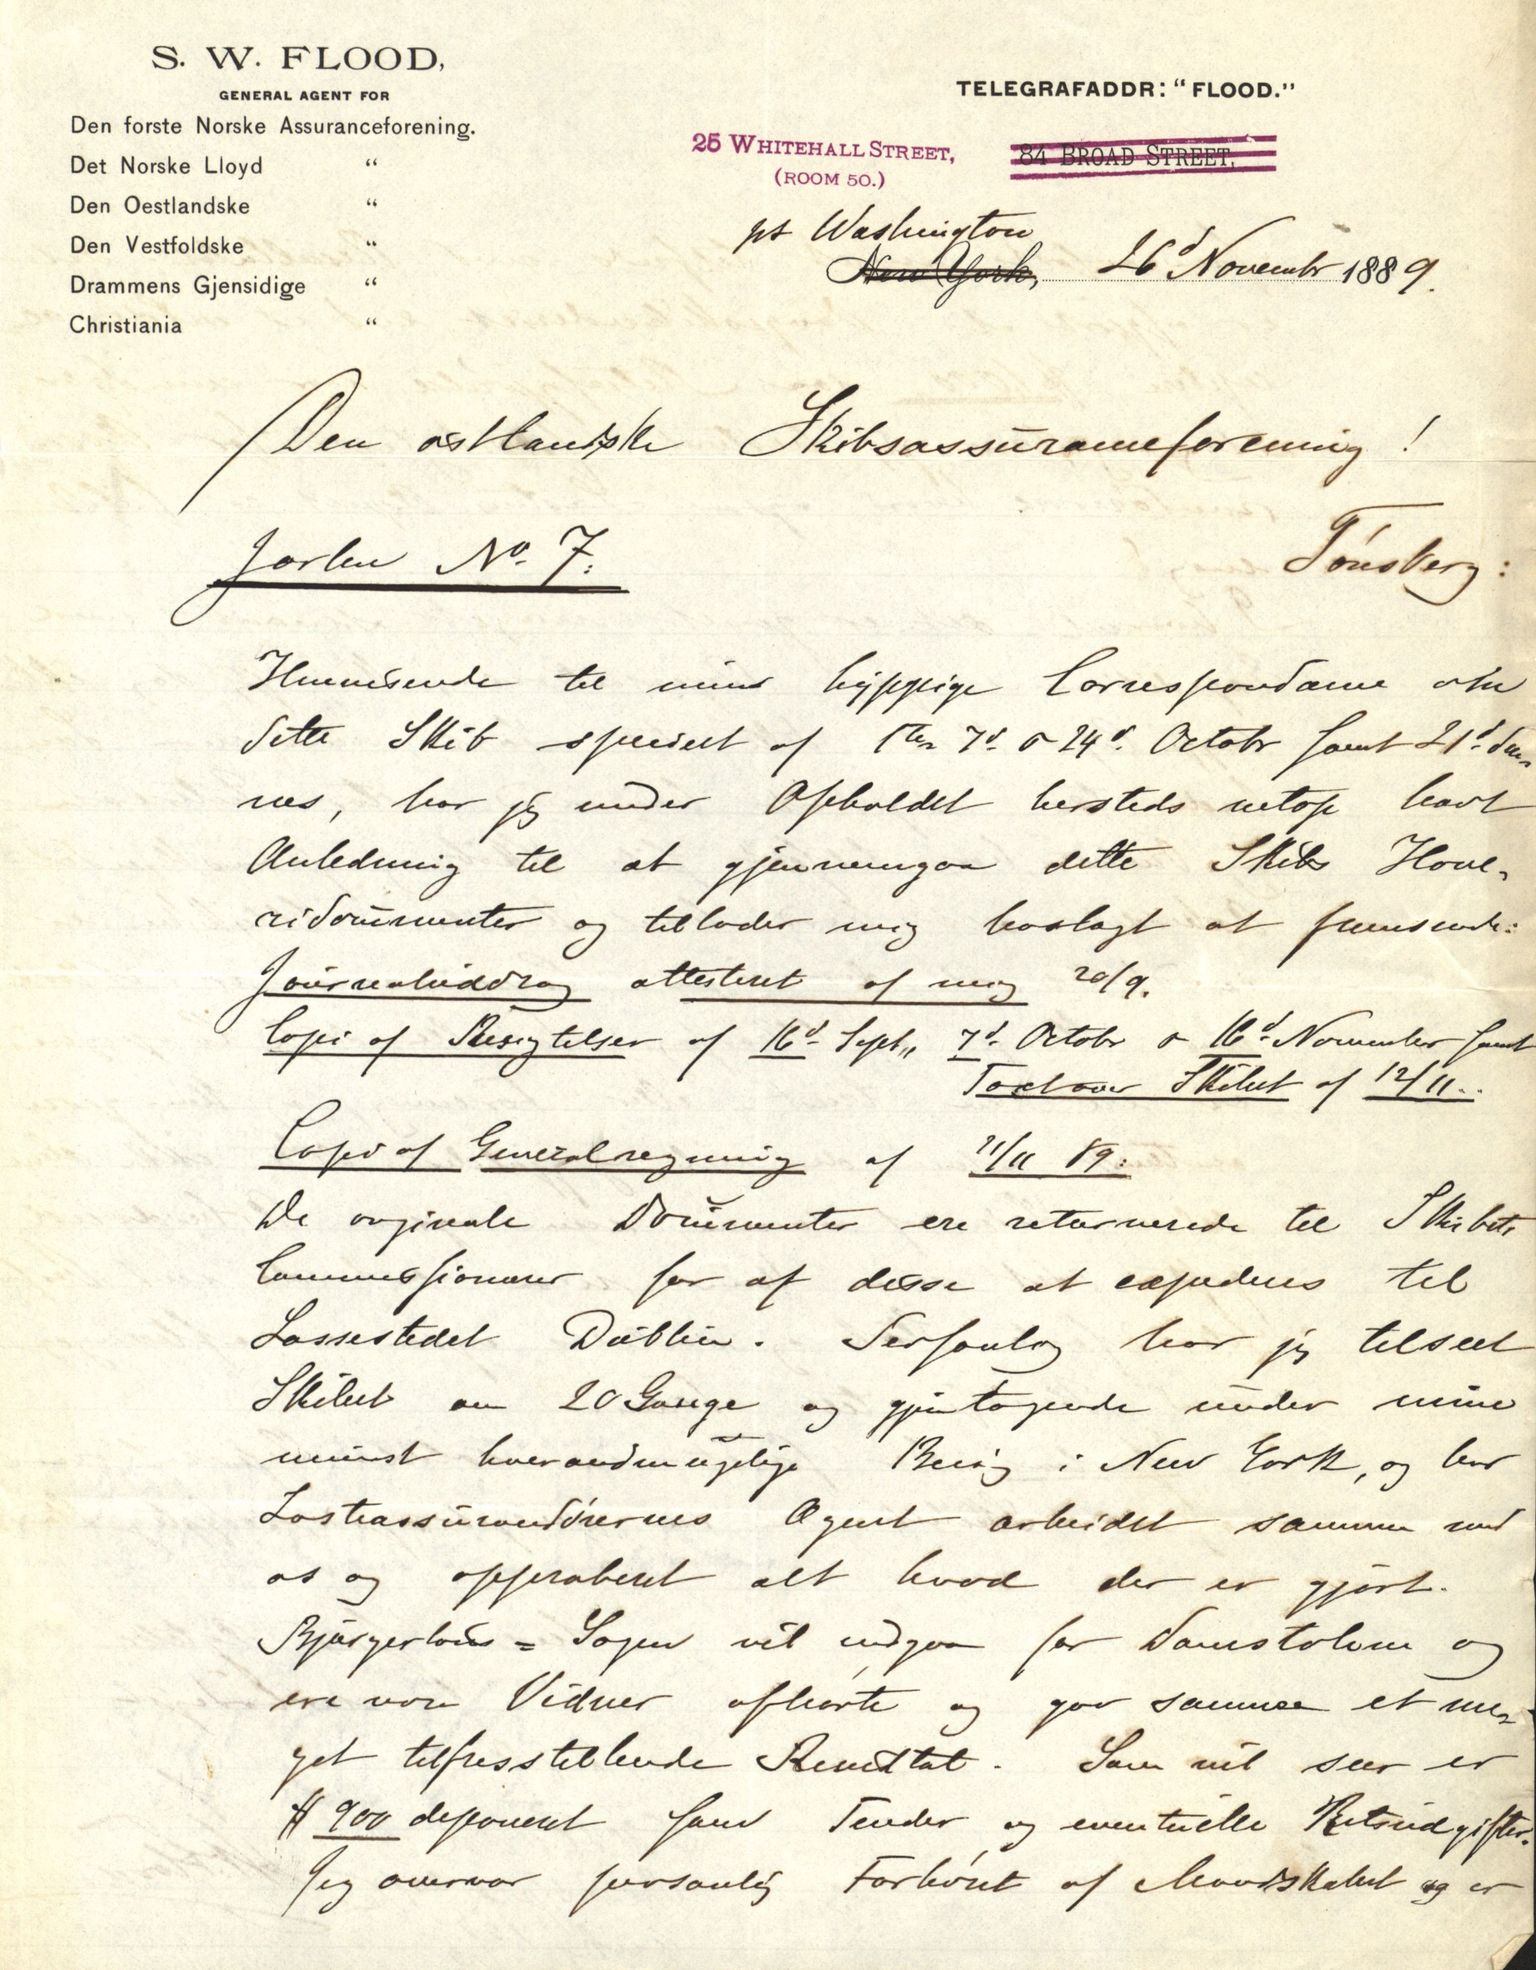 S. W. FLOOD,
GENERAL AGENT FOR
Den forste Norske Assuranceforening.
Det Norske Lloyd "
Den Oestlandske "
Den Vestfoldske "
Drammens Gjensidige "
Christiania "
TELEGRAFADDR: "FLOOD."
25 WHITEHALL STREET,
(ROOM 50.)
84 BROAD STREET,
pt Washington
New York, 26d Novembr 1889.
Den østlandske Skibsassuranceforening!
Jarlen No. 7:
Tönsberg:
Henvisende til min hyppige Correspondance om
dette Skib specielt af 7d. & 24d. Octobr samt 21d. den-
nes, har jeg under Opholdet hersteds netop havt
Anledning til at gjennemgaa dette Skibs Hava-
ridocumenter og tillader mig hoslagt at fremsende:
Journaluddrag attesteret af mig 20/9.
Copi af Besigtelser af 16d Sept,, 7d. Octobr & 16d. November samt
Taxt over Skibet af 12/11..
Copi af Generalregning af 21/11 89:
De orginale Documenter ere returnerede til Skibets
Commissionærer for af disse at expederes til
Lossestedet Dublin. Personlig har jeg tilseet
Skibet en 20 Gange og gjentagende under mine
minst hverandenugelige Besøg i New York, og har
Lastassurandörernes Agent arbeidet sammen med
os og approberet alt hvad der er gjort.
Bjærgerlöns = Sagen vil indgaa for Domstolene og
ere vore Vidner afhörte og gav samme et me-
get tilfresstillende Resultat. Som vil sees er
$ 900 deponeret som Tender og eventuelle Retsudgifter.
Jeg overvar personlig Forhöret af Mandskabet og er